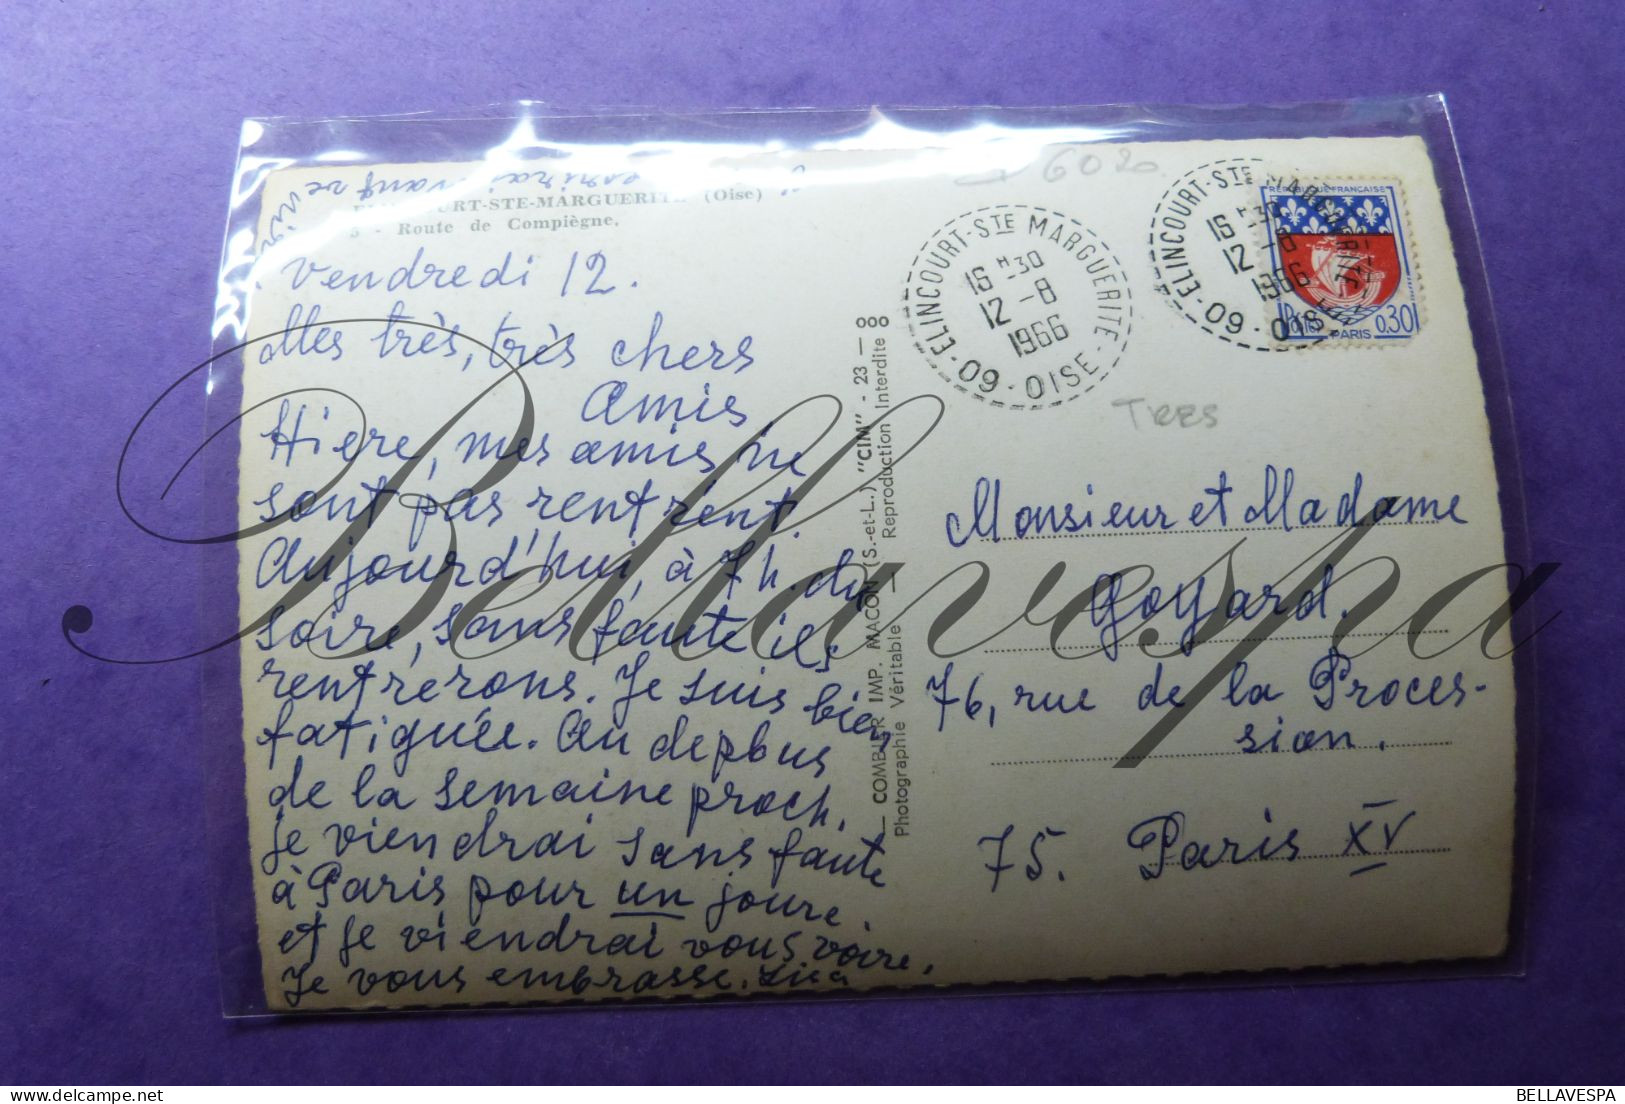 6020
ELINCOURT-STE-MARGUERITE (Oise)
5 - Route de Compiègne.
Vendredi 12.
Mes très, très chers
Amis
Hiere, mes amis ne
sont pas rentrént.
Aujourd'hui, à 7h. du
soire, sans faute ils
rentrerons. Je suis bien
fatiguée. Au depbus
de la semaine proch.
je viendrai sans faute
à Paris pour un joure.
et je viendrai vous voire.
Je vous embrasse.
— COMBIER IMP. MACON (S.-et-L.) "CIM" - 23 — 000
Photographie Véritable — Reproduction Interdite
ELINCOURT-STE MARGUERITE
16 H 30
12 -8
1966
09 - OISE
ELINCOURT-STE MARGUERITE
16 H 30
12 -8
1966
09 - OISE
REPUBLIQUE FRANÇAISE
Postes 0,30
PARIS
TRES
Monsieur et Madame
Goyard.
76, rue de la Proces-
sion.
75. Paris XV
Bellavespa
BELLAVESPA